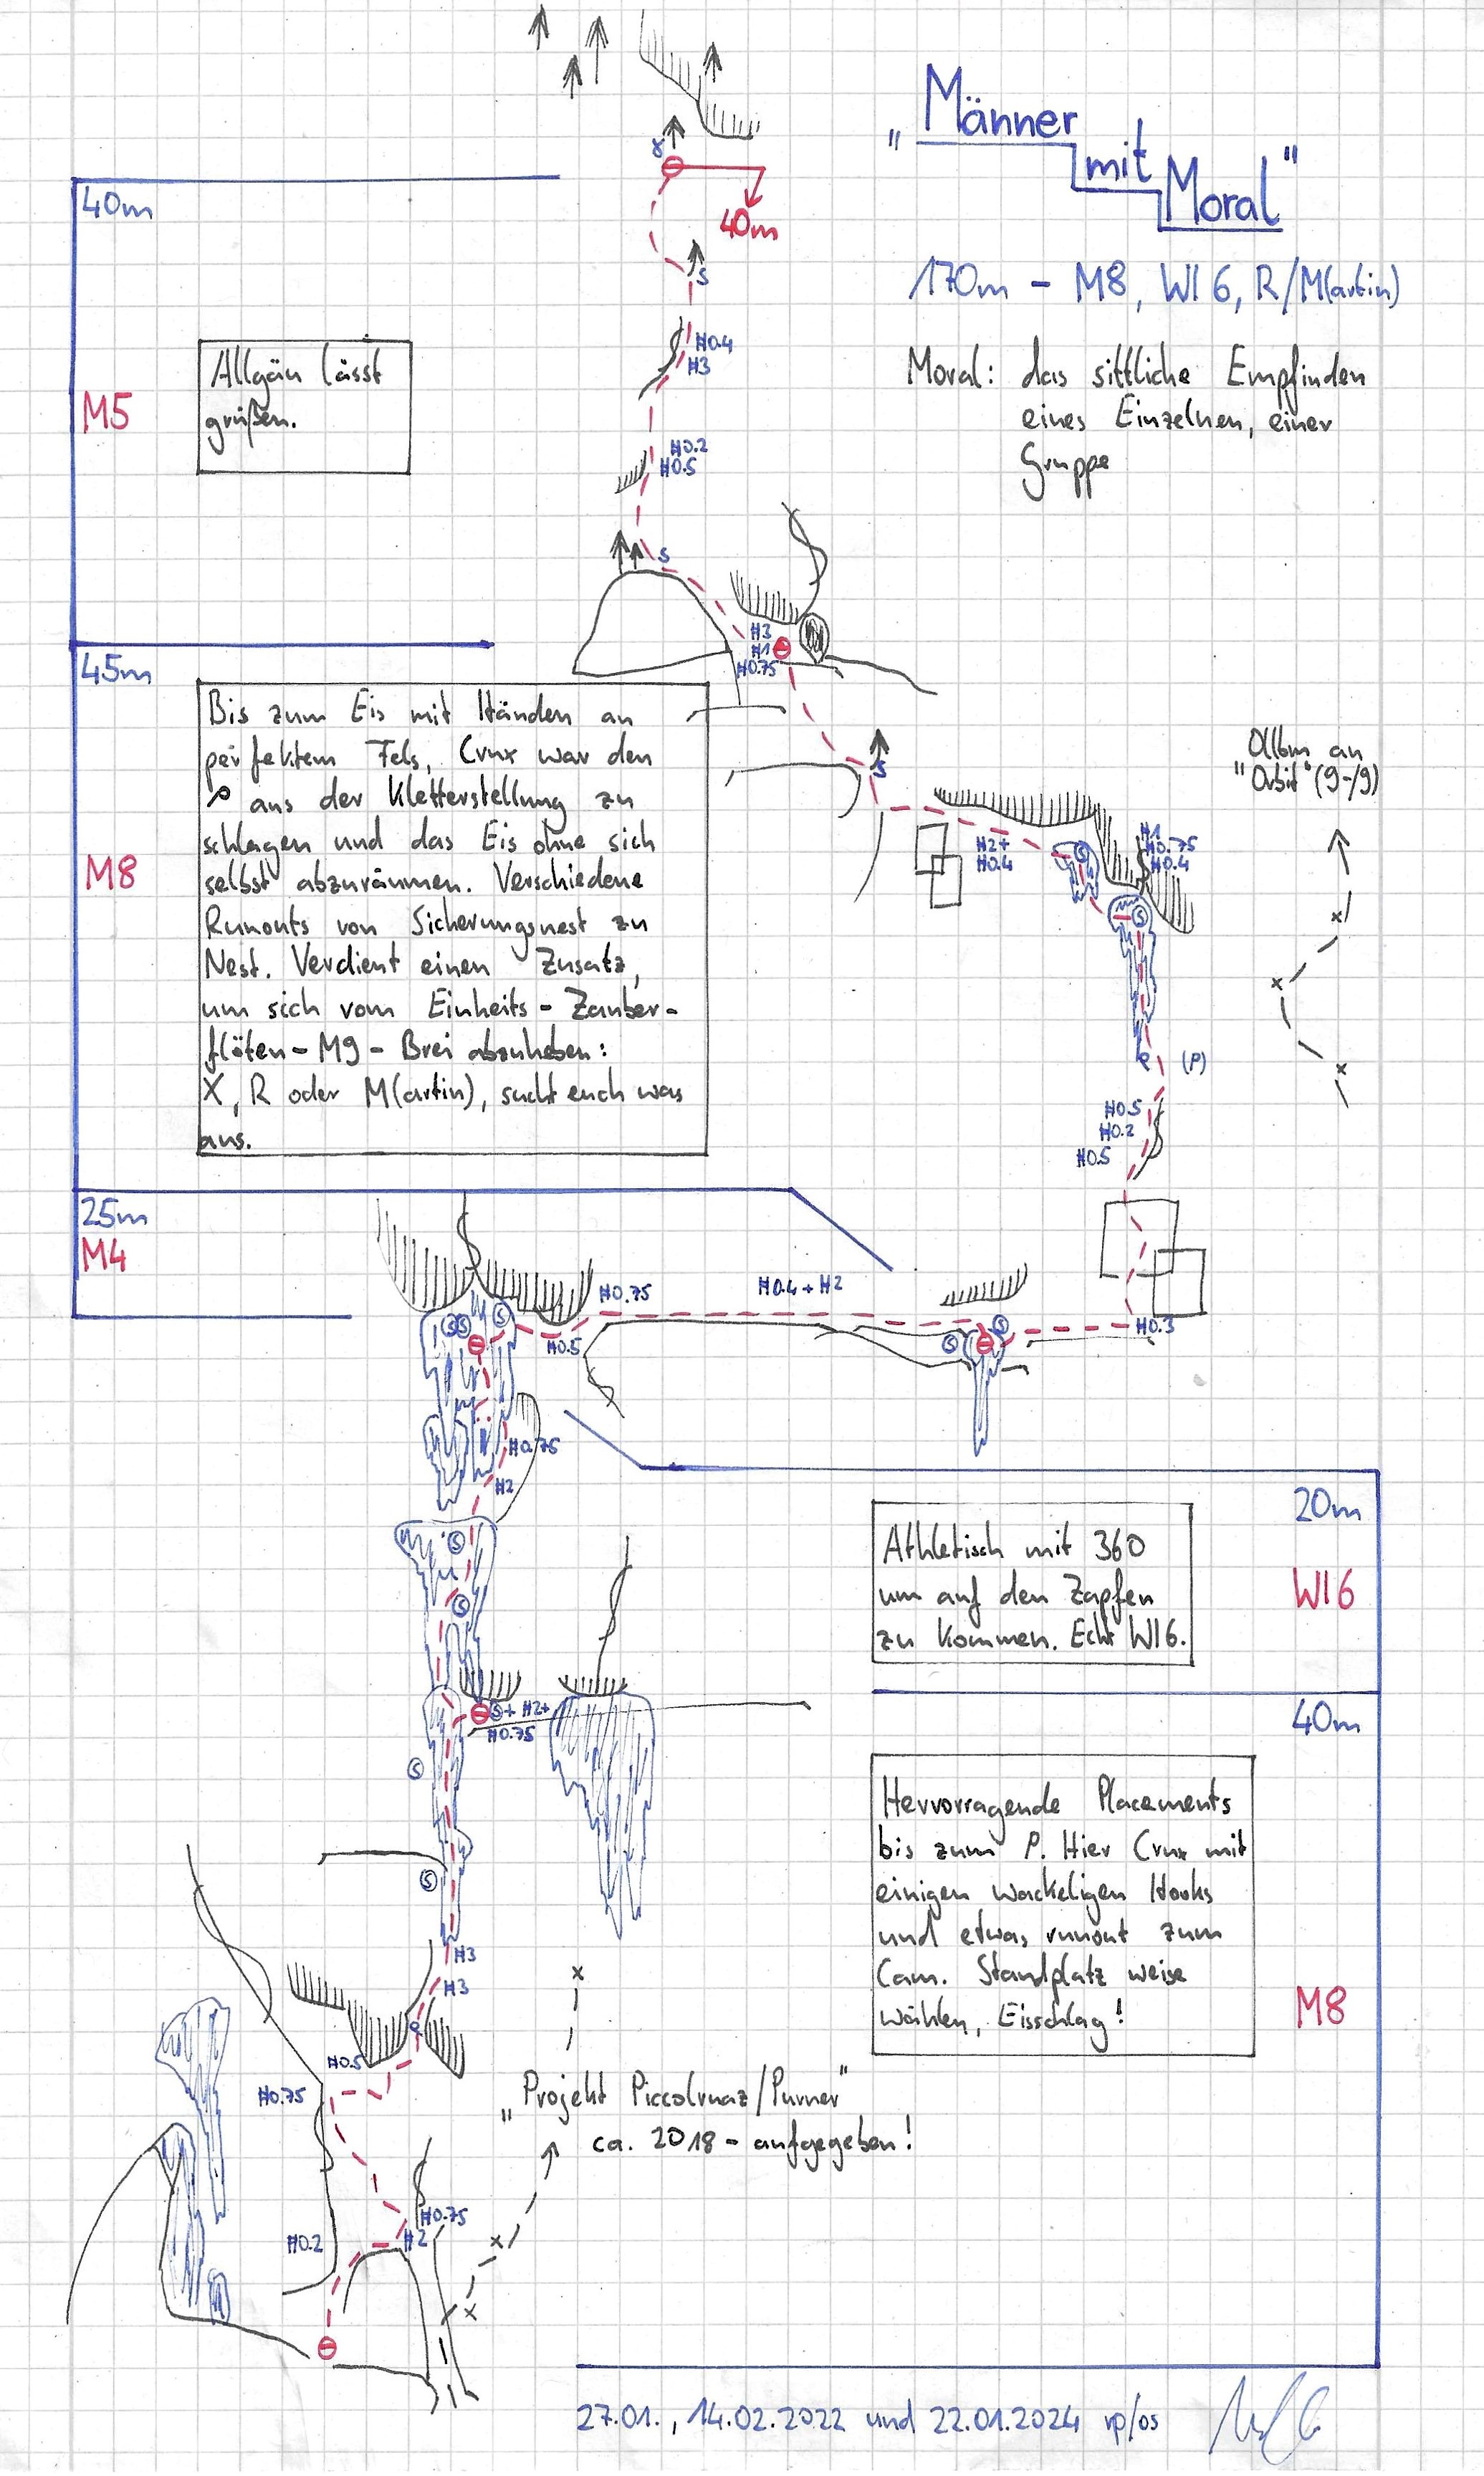 "Männer
mit
Moral"
170m - M8, WI 6, R/M(artin)
Moral: das sittliche Empfinden
eines Einzelnen, einer
Gruppe
40m
40m
S
H0.4
H3
M5
Allgäu lässt
grüßen.
H0.2
H0.5
S
H3
H1
H0.75
45m
M8
Bis zum Eis mit Händen an
perfektem Fels, Crux war den
aus der Kletterstellung zu
schlagen und das Eis ohne sich
selbst abzuräumen. Verschiedene
Runouts von Sicherungsnest zu
Nest. Verdient einen Zusatz,
um sich vom Einheits-Zauber-
flöten-M9-Brei abzuheben:
X, R oder M(artin), sucht euch was
aus.
S
an
"Orbit" (9-/9)
H2+
H0.4
S
H1
H0.75
H0.4
S
(P)
H0.5
H0.2
H0.5
25m
M4
H0.75
H0.4 + H2
S S S
H0.5
S
S
H0.3
H0.75
H2
20m
WI6
Athletisch mit 360
um auf den Zapfen
zu kommen. Echt WI6.
S
S
S + H2+
H0.75
40m
M8
Hervorragende Placements
bis zum P. Hier Crux mit
einigen wackeligen Hooks
und etwas runout zum
Cam. Standplatz weise
wählen, Eisschlag!
S
S
H3
H3
H0.5
H0.75
"Projekt Piccolruaz/Purner"
ca. 2018 - aufgegeben!
H0.75
H2
H0.2
27.01., 14.02.2022 und 22.01.2024 rp/os